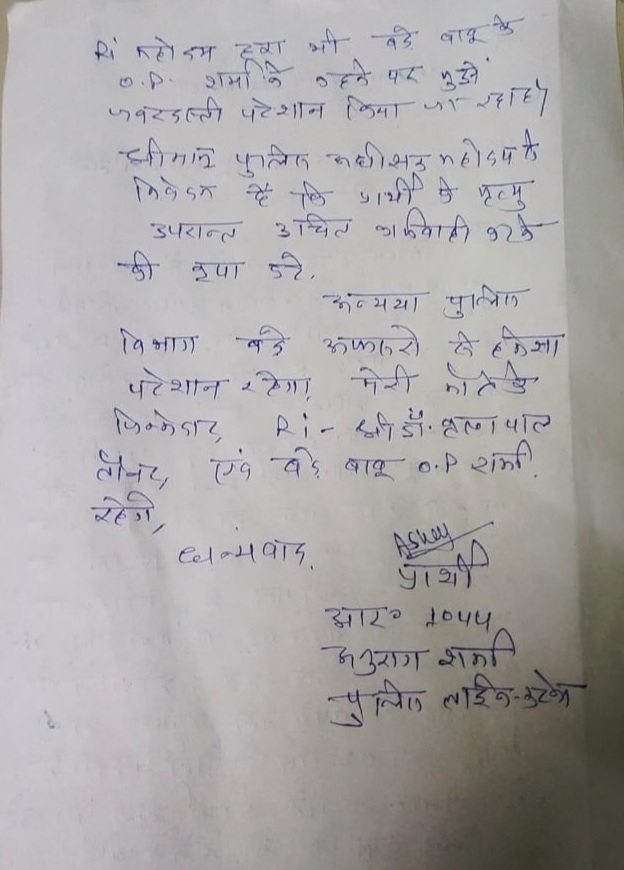 Ri महोदय द्वारा भी बड़े बाबू के
O.P. शर्मा के कहने पर मुझे
जबरदस्ती परेशान किया जा रहा है।
श्रीमान पुलिस अधीक्षक महोदय से
निवेदन है कि प्रार्थी के मृत्यु
उपरान्त उचित कार्यवाही करने
की कृपा करे.
अन्यथा पुलिस
विभाग बड़े अफसरो से हमेशा
परेशान रहेगा, मेरी मौत के
जिम्मेदार, Ri - श्री डॉ.
एवं बड़े बाबू O.P शर्मा.
रहेगे,
धन्यवाद.
प्रार्थी
आर० 1044
अनुराग शर्मा
पुलिस लाईन